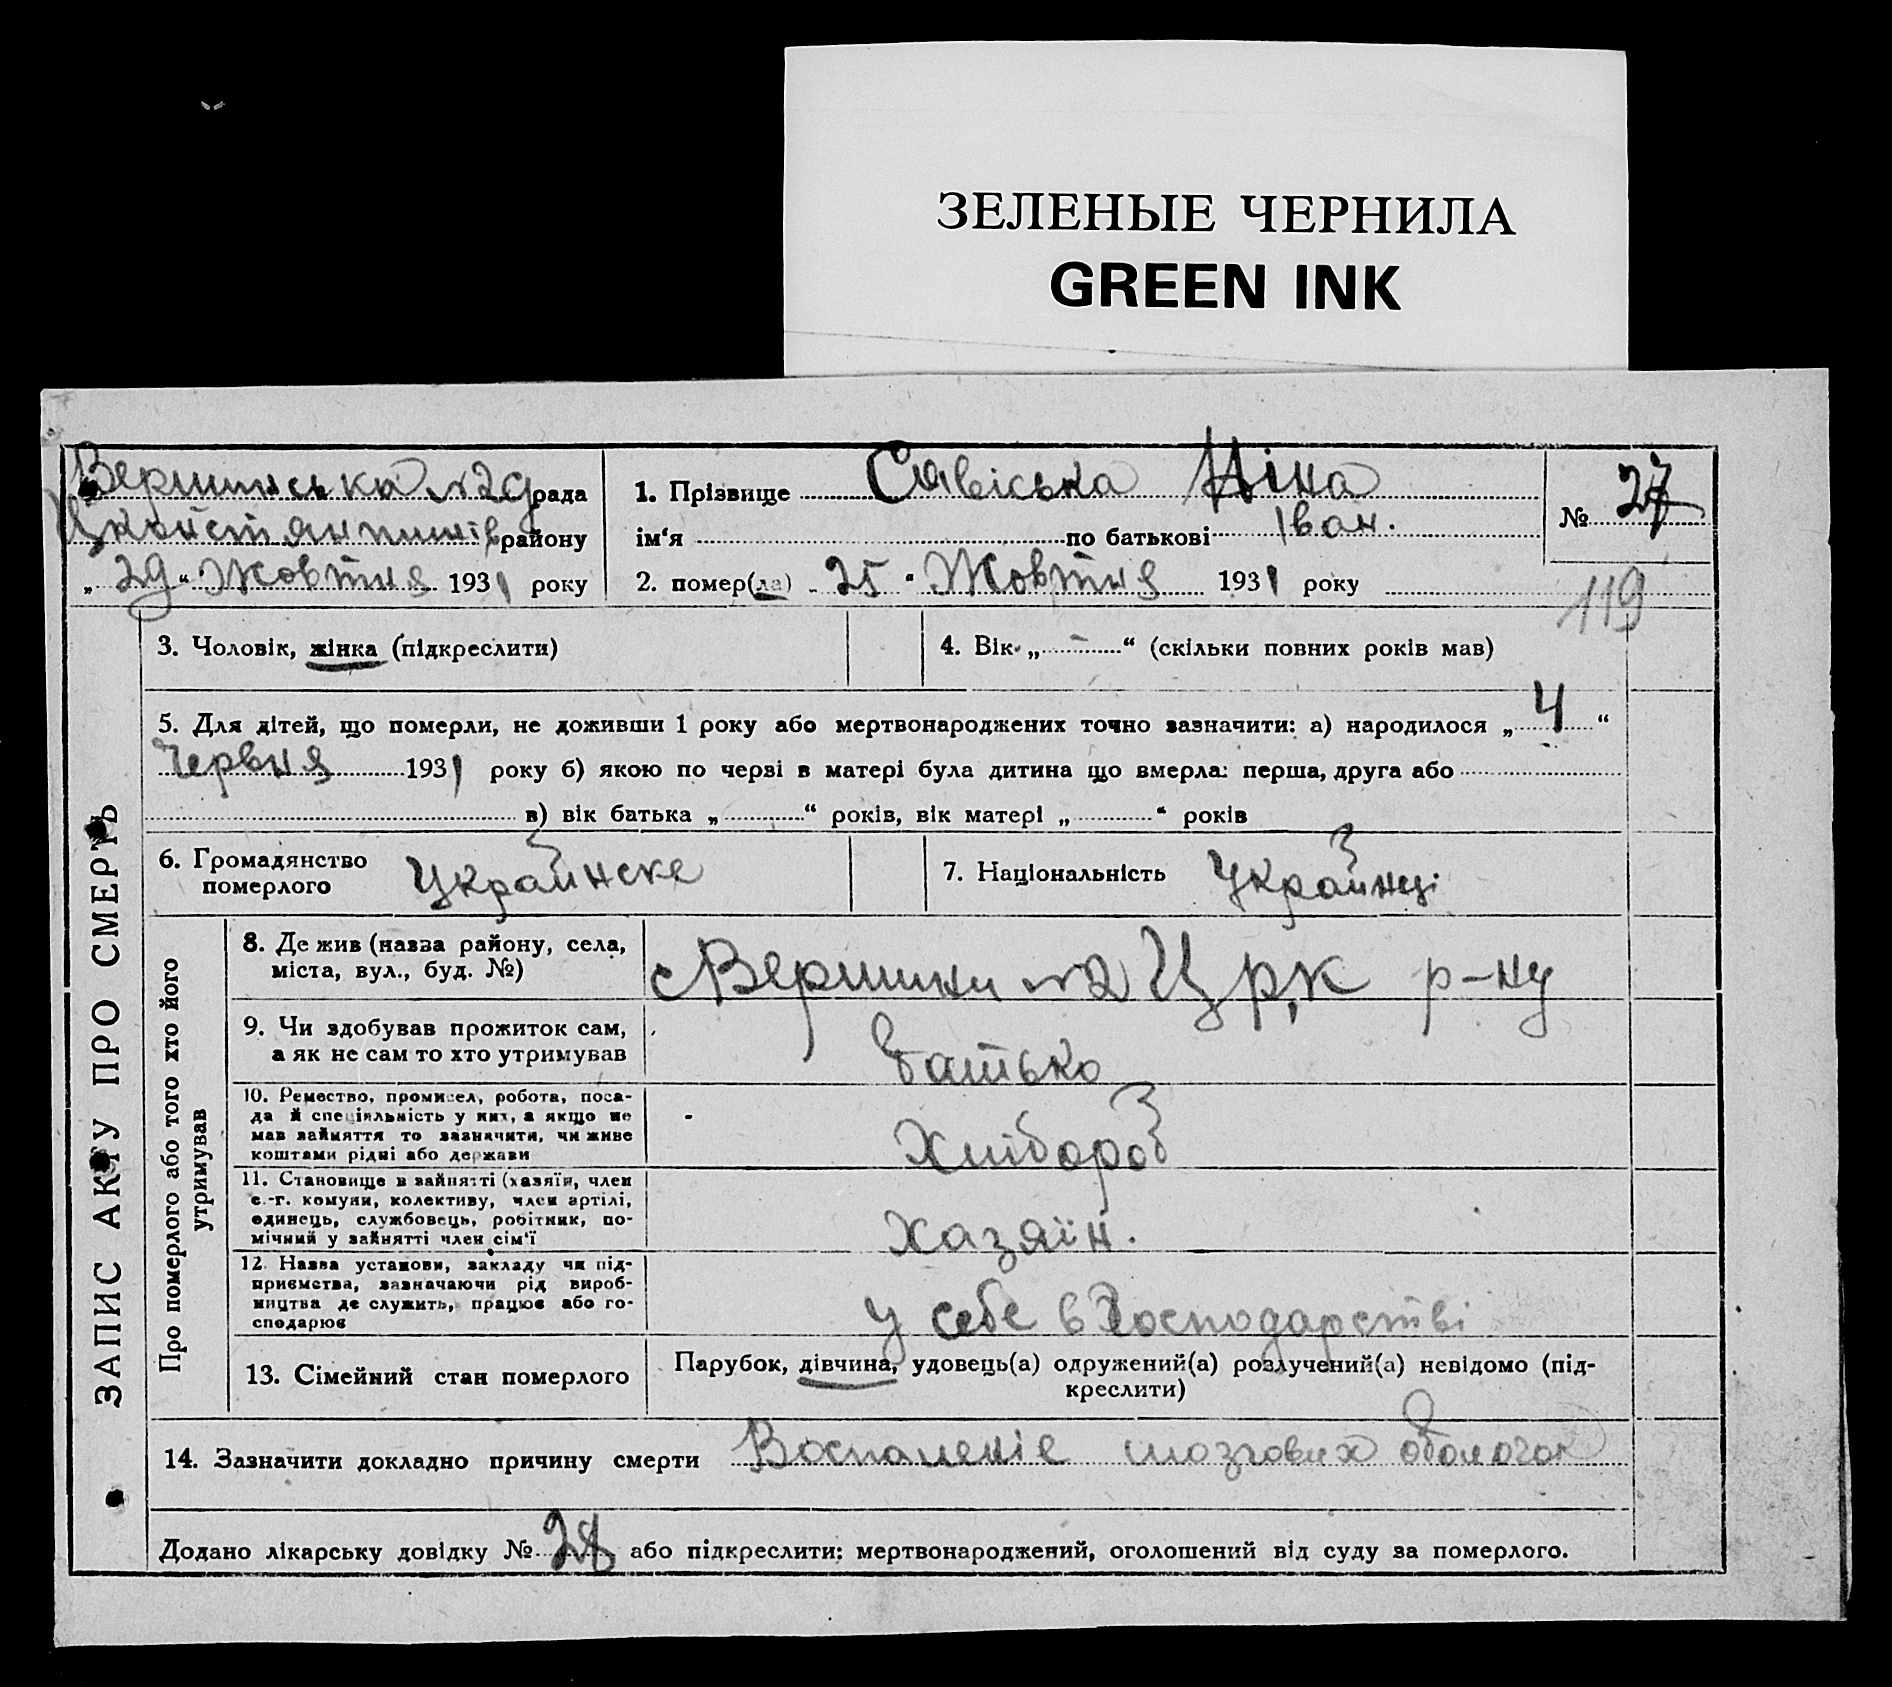 ЗЕЛЕНЫЕ ЧЕРНИЛА
GREEN INK
Вершинська №2 рада
району
„29“ Жовтня 1931 року
1. Прізвище Савіська Ніна
ім‘я по батькові Іван.
2. помер(ла) 25 “ Жовтня 1931 року
№ 27
119
ЗАПИС АКТУ ПРО СМЕРТЬ
3. Чоловік, жінка (підкреслити)
4. Вік „ - “ (скільки повних років мав)
5. Для дітей, що померли, не доживши 1 року або мертвонароджених точно зазначити: а) народилося „ 4 “
Червня 1931 року б) якою по черві в матері була дитина що вмерла: перша, друга або
в) вік батька „ “ років, вік матері „ “ років
6. Громадянство
померлого
Українске
7. Національність Українці
Про померлого або того хто його
утримував
8. Де жив (назва району, села,
міста, вул., буд. №)
с Вершини №2 Ц р,к р-ну
9. Чи здобував прожиток сам,
а як не сам то хто утримував
батько
10. Ремество, промисел, робота, поса-
да й спеціяльність у них, а якщо не
мав зайняття то зазначити, чи живе
коштами рідні або держави
Хлібороб
11. Становище в зайнятті (хазяїн, член
с.-г. комуни, колективу, член артілі,
одинець, службовець, робітник, по-
мічний у зайнятті член сім‘ї
хазяїн.
12. Назва установи, закладу чи під-
приємства, зазначаючи рід вироб-
ництва де служить, працює або го-
сподарює
у себе в Господарстві
13. Сімейний стан померлого
Парубок, дівчина, удовець(а) одружений(а) розлучений(а) невідомо (під-
креслити)
14. Зазначити докладно причину смерти Воспаленіе мозгових оболочок
Додано лікарську довідку № 28 або підкреслити: мертвонароджений, оголошений від суду за померлого.